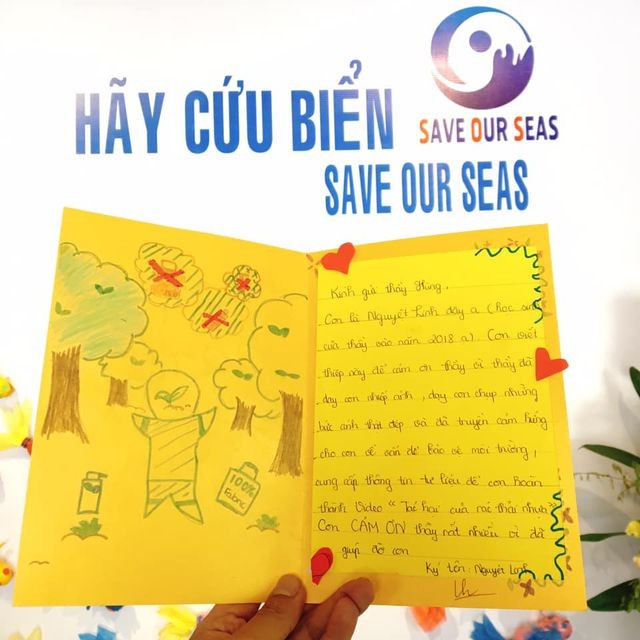 HÃY CỨU BIỂN
SAVE OUR SEAS
SAVE OUR SEAS
100%
Fabric
Kính gửi thầy Hùng,
Con là Nguyệt Linh đây ạ (học sinh
của thầy vào năm 2018 ạ) Con viết
thiệp này để cảm ơn thầy vì thầy đã
dạy con nhiếp ảnh, dạy con chụp những
bức ảnh thật đẹp và đã truyền cảm hứng
cho con về vấn đề bảo vệ môi trường,
cung cấp thông tin tư liệu để con hoàn
thành video "Tác hại của rác thải nhựa"
Con CẢM ƠN thầy rất nhiều vì đã
giúp đỡ con
Ký tên: Nguyệt